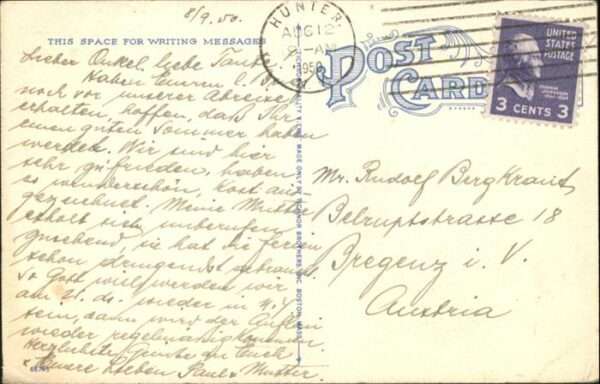 8/9.50.
THIS SPACE FOR WRITING MESSAGES
Lieber Onkel, liebe Tante
Haben Euren l. B.
noch vor unserer Abreise
erhalten, hoffen, dass Ihr
einen guten Sommer haben
werdet. Wir sind hier
sehr zufrieden, haben
es wunderschön, Kost aus
gezeichnet. Meine Mutter
erholt sich unberufen
zusehend, sie hat die Ferien
schon dringendst gebraucht
So Gott will werden wir
am 21. ds. wieder in N.Y.
sein, dann wird der
wieder regelmässig kommen.
Herzlichste Grüsse an Euch
Eure Lieben Paul & Mutter.
HUNTER
AUG 12
AM
1950
N.Y.
POST
CARD
UNITED
STATES
POSTAGE
3 CENTS 3
Mr. Rudolf Bergkraut
Belruptstrasse 18
Bregenz i. V.
Austria